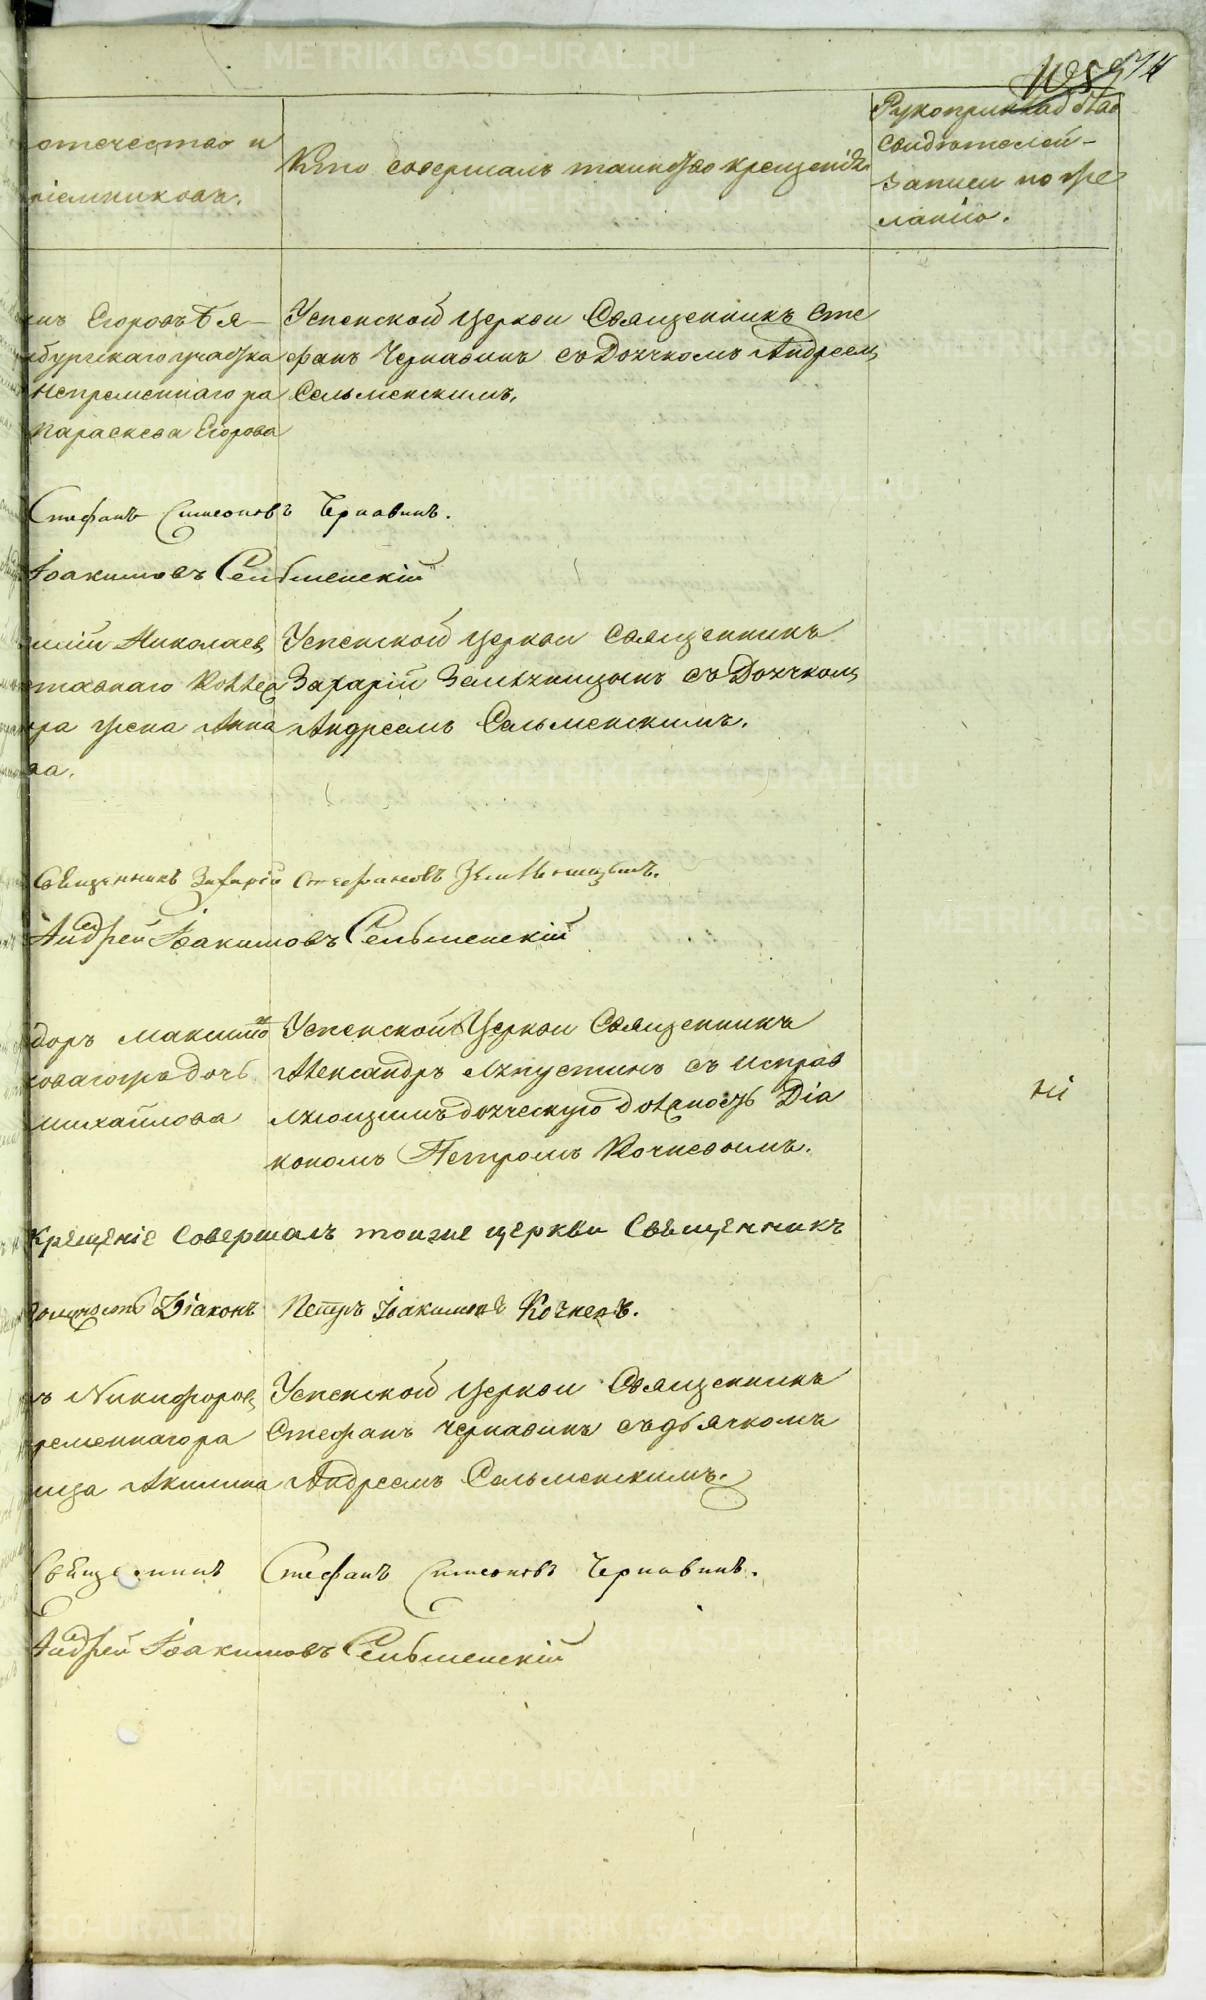 574
отечество и
ріемниковъ.
Кто совершалъ таинство крещенія.
Рукоприкладство
свидѣтелей
записи по же
ланію.
инъ Егоровъ Бя-
бургскаго участка
непременнаго ра
Параскева Егорова
Успенской церкви Священникъ Сте
фанъ Чернавинъ съ Дьячкомъ Андреем
Сельменскимъ.
Стефанъ Симеоновъ Чернавинъ.
Іоакимовъ Сельменскій
Николаев
ставнаго
ра жена Анна
ва.
Успенской церкви Священникъ
Захарій Земляницынъ съ Дьячком
Андреемъ Сельменскимъ.
Священникъ Захарій Стефановъ Земляницынъ.
Андрей Іоакимовъ Сельменскій
доръ Максимо
дочь
михайлова
Успенской Церкви Священникъ
Александръ Ляпустинъ съ исправ
ляющимъ дьяческую должность Діа
кономъ Петромъ Кочневымъ.
ні
Крещеніе совершалъ тоиже церкви Священникъ
должность Діаконъ Петръ Іоакимовъ Кочневъ.
ъ Никифоров
ременнаго ра
ица Акилина
Успенской церкви Священникъ
Стефанъ Чернавинъ съ дьячкомъ
Андреемъ Сельменскимъ.
Священникъ Стефанъ Симеоновъ Чернавинъ.
Андрей Іоакимовъ Сельменскій
METRIKI.GASO-URAL.RU